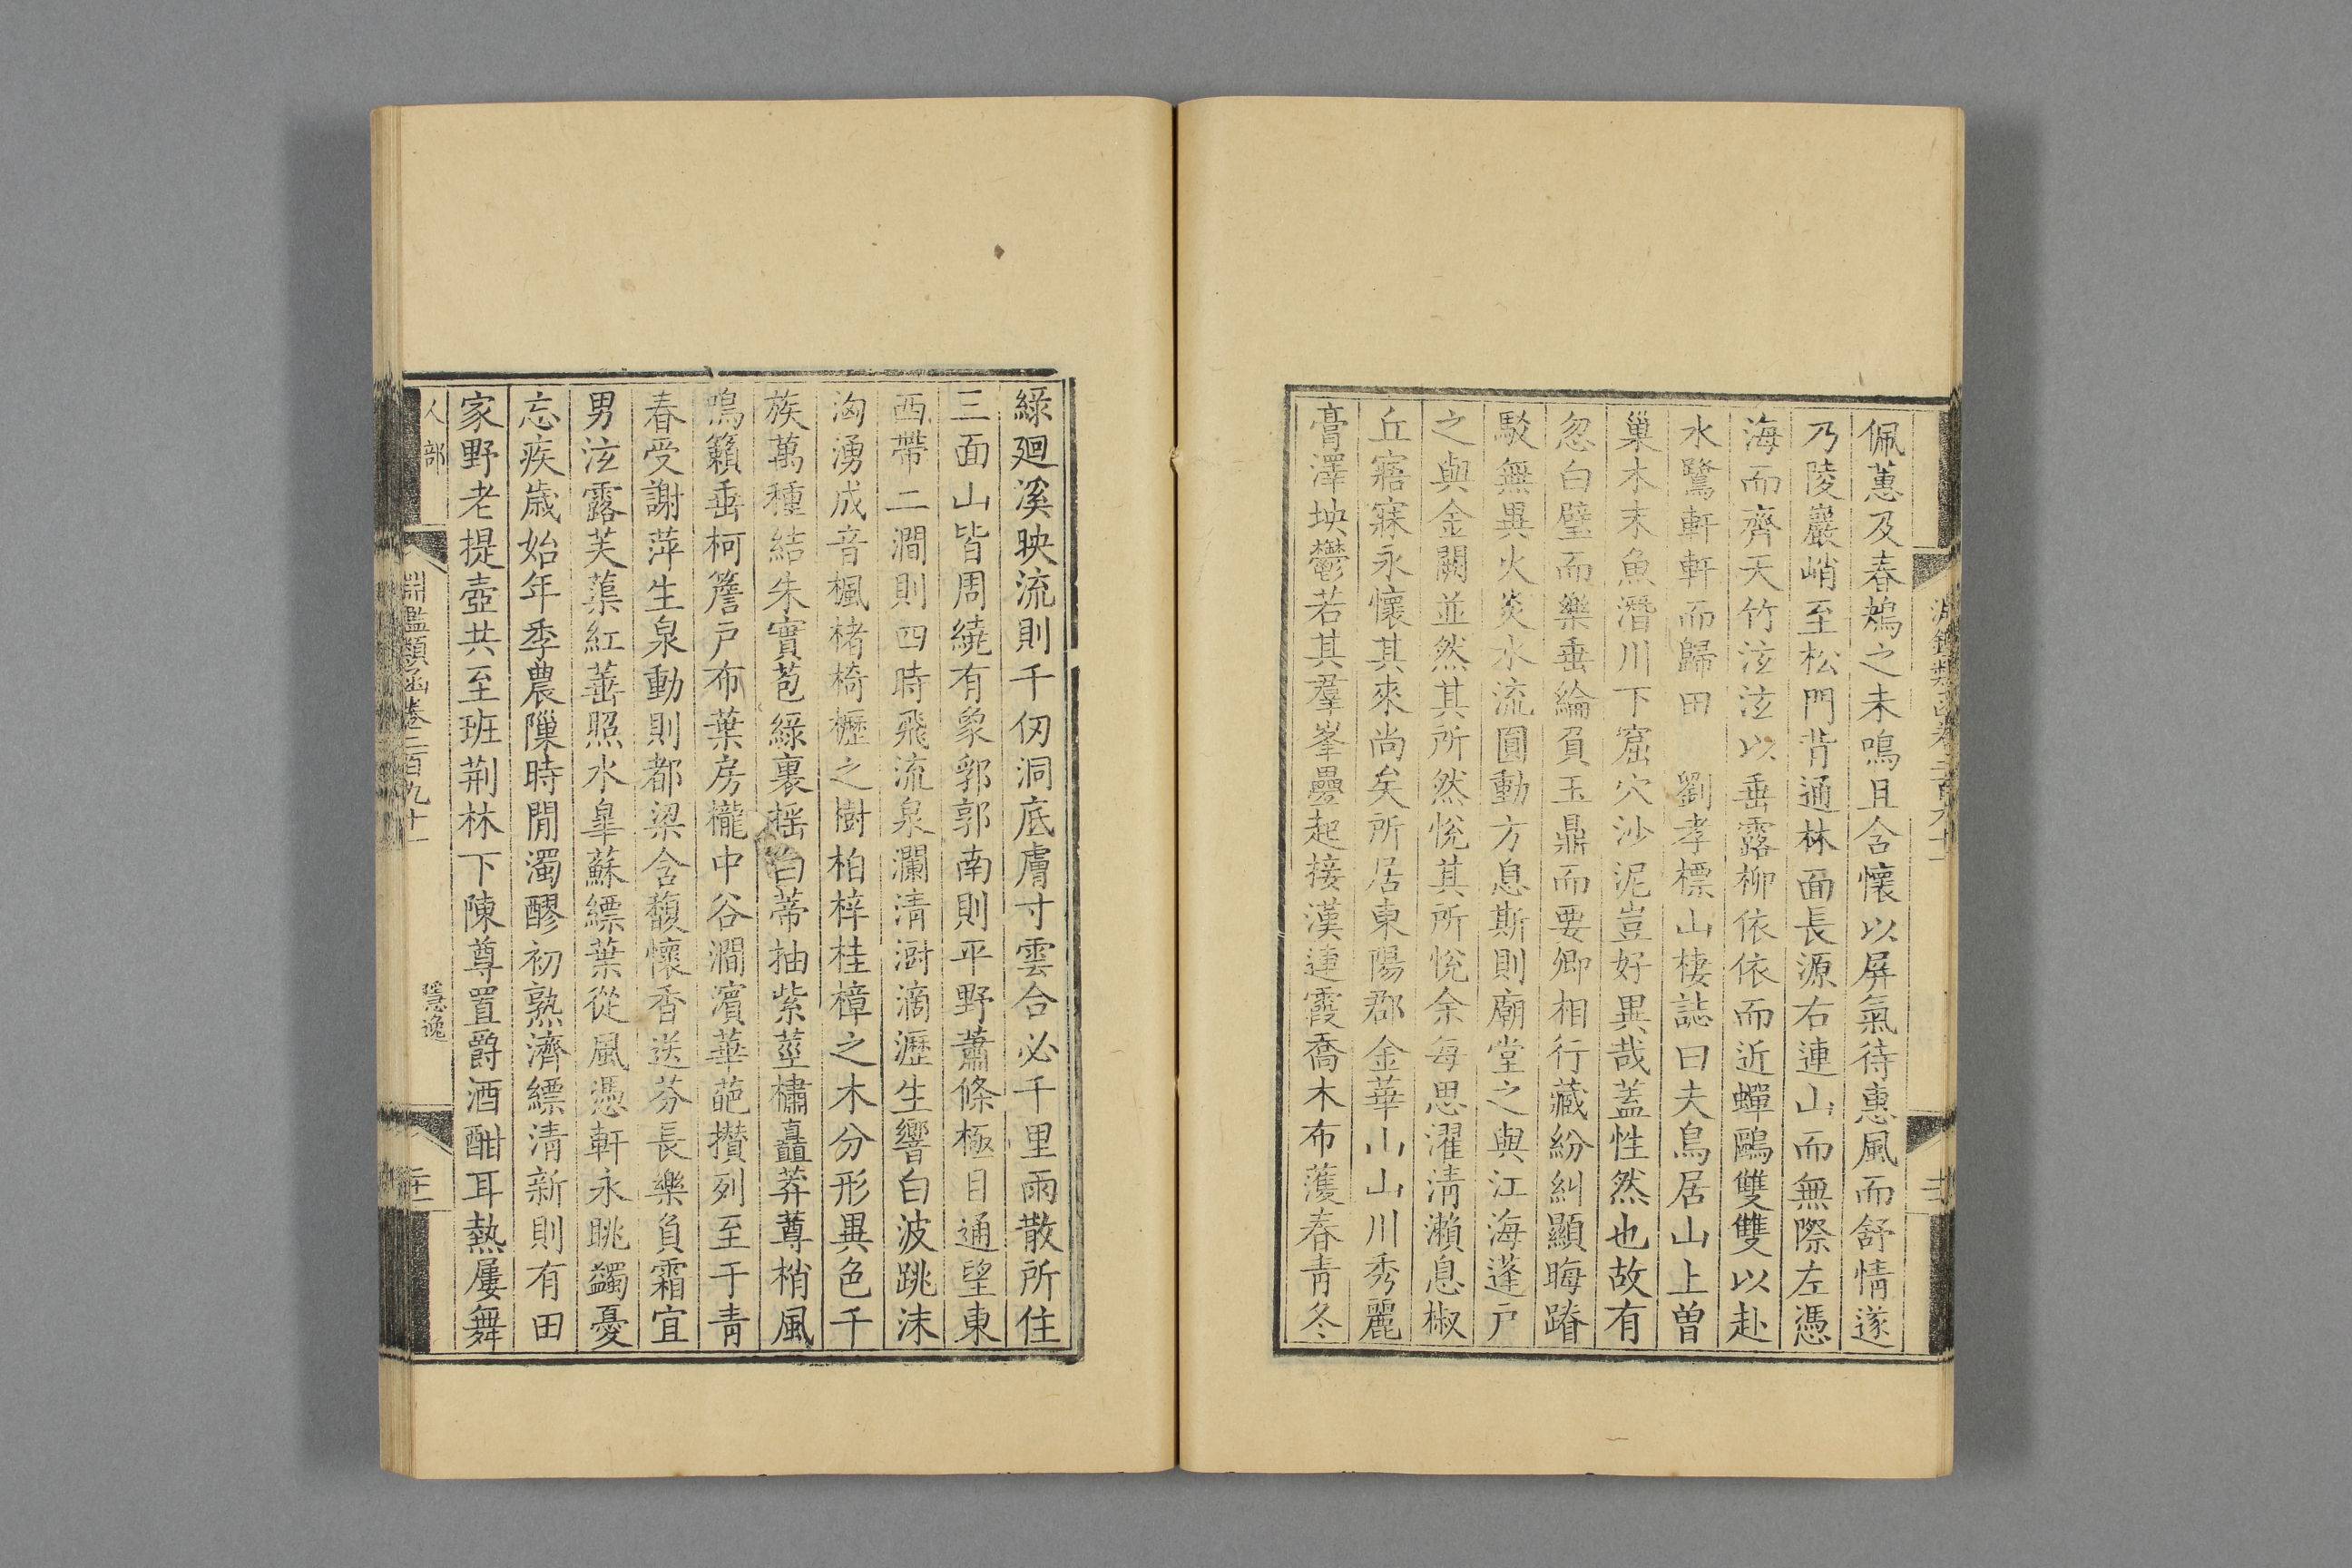 佩蕙及春鴂之未鳴且含懷以屏氣待惠風而舒情遂
乃陵巖峭至松門背通林面長源右連山而無際左憑
海而齊天竹泫泫以垂露柳依依而近蟬鷗雙雙以赴
水鷺軒軒而歸田　劉孝標山棲誌曰夫鳥居山上曾
巢木末魚潛川下窟穴沙泥豈好異哉蓋性然也故有
忽白璧而樂垂綸負玉鼎而要卿相行藏紛糾顯晦踳
駁無異火炎水流圓動方息斯則廟堂之與江海蓬戶
之與金闕並然其所然悅其所悅余每思濯清瀨息椒
丘寤寐永懷其來尚矣所居東陽郡金華山山川秀麗
膏澤坱鬱若其羣峯疊起接漢連霞喬木布濩春青冬
綠廻溪映流則千仞洞底膚寸雲合必千里雨散所住
三面山皆周繞有象郛郭南則平野蕭條極目通望東
西帶二澗則四時飛流泉瀾清澍滴瀝生響白波跳沫
洶湧成音楓楮椅櫪之樹柏梓桂樟之木分形異色千
族萬種結朱實苞綠裏搖白蒂抽紫莖橚矗莽蓴梢風
鳴籟垂柯簷戶布葉房櫳中谷澗濱華葩攢列至于青
春受謝萍生泉動則都梁含馥懷香送芬長樂負霜宜
男泫露芙蕖紅華照水皐蘇縹葉從風憑軒永眺蠲憂
忘疾歲始年季農隟時閒濁醪初熟濟縹清新則有田
家野老提壺共至班荆林下陳尊置爵酒酣耳熱屢舞
人部
淵鑑類函卷二百九十一
隱逸